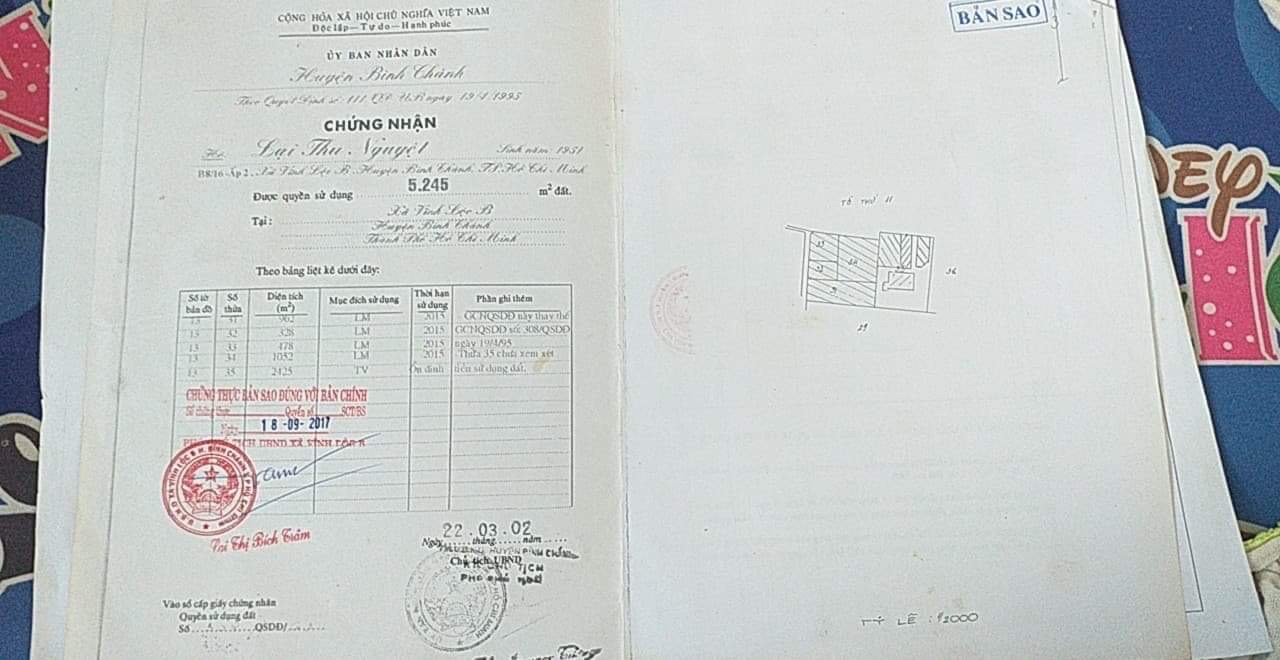 CỘNG HÒA XÃ HỘI CHỦ NGHĨA VIỆT NAM
Độc lập—Tự do—Hạnh phúc
ỦY BAN NHÂN DÂN
Huyện Bình Chánh
Theo Quyết Định số: 111/QĐ-UB ngày 19/4/1995
CHỨNG NHẬN
Hộ Lại Thu Nguyệt Sinh năm: 1951
B8/16-Ấp 2, Xã Vĩnh Lộc B, Huyện Bình Chánh, TP.Hồ Chí Minh
Được quyền sử dụng 5.245 m² đất.
Tại: Xã Vĩnh Lộc B
Huyện Bình Chánh
Thành Phố Hồ Chí Minh
Theo bảng liệt kê dưới đây:
Số tờ bản đồ Số thửa Diện tích (m²) Mục đích sử dụng Thời hạn sử dụng Phần ghi thêm
13 31 962 LM 2015 GCNQSDĐ này thay thế
13 32 328 LM 2015 GCNQSDĐ số: 308/QSDĐ
13 33 478 LM 2015 ngày 19/4/95
13 34 1052 LM 2015 Thửa 35 chưa xem xét
13 35 2425 TV Ổn định tiền sử dụng đất.
CHỨNG THỰC BẢN SAO ĐÚNG VỚI BẢN CHÍNH
Số chứng thực Quyển số SCT/BS
Ngày 18-09-2017
TỊCH UBND XÃ VĨNH LỘC B
U.B.N.D XÃ VĨNH LỘC B H. BÌNH CHÁNH T.P HỒ CHÍ MINH
Tại Thị Bích Trâm
22.03.02
Ngày......tháng......năm.....
Chủ tịch UBND
Vào sổ cấp giấy chứng nhân
Quyền sử dụng đất
Số QSDĐ/
BẢN SAO
TỜ THỨ 11
33
34
36
29
TỶ LỆ : 1/2000